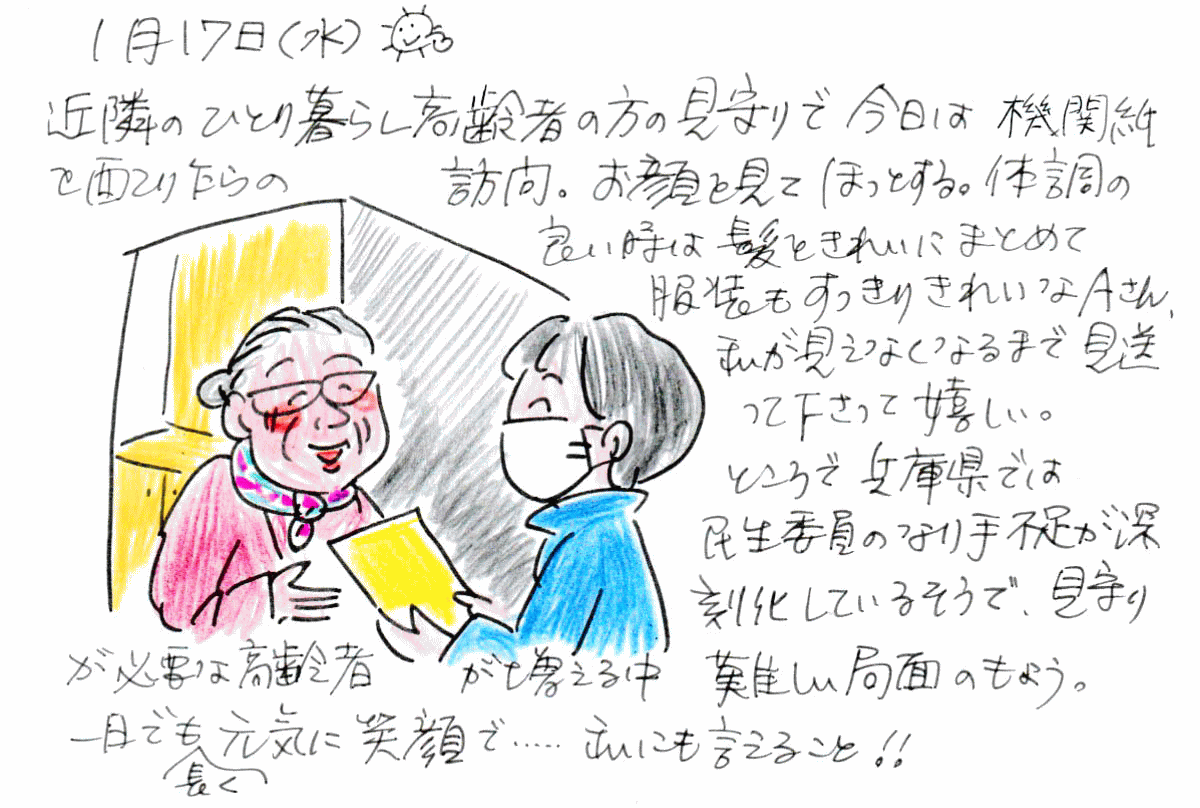 1月17日(水)
近隣のひとり暮らし高齢者の方の見守りで今日は機関紙
を配りながらの訪問。お顔を見てほっとする。体調の
良い時は髪をきれいにまとめて
服装もすっきりきれいなAさん、
私が見えなくなるまで見送
って下さって嬉しい。
ところで兵庫県では
民生委員のなり手不足が深
刻化しているそうで、見守り
が必要な高齢者が増える中難しい局面のもよう。
一日でも元気に笑顔で.....私にも言えること!!
長く